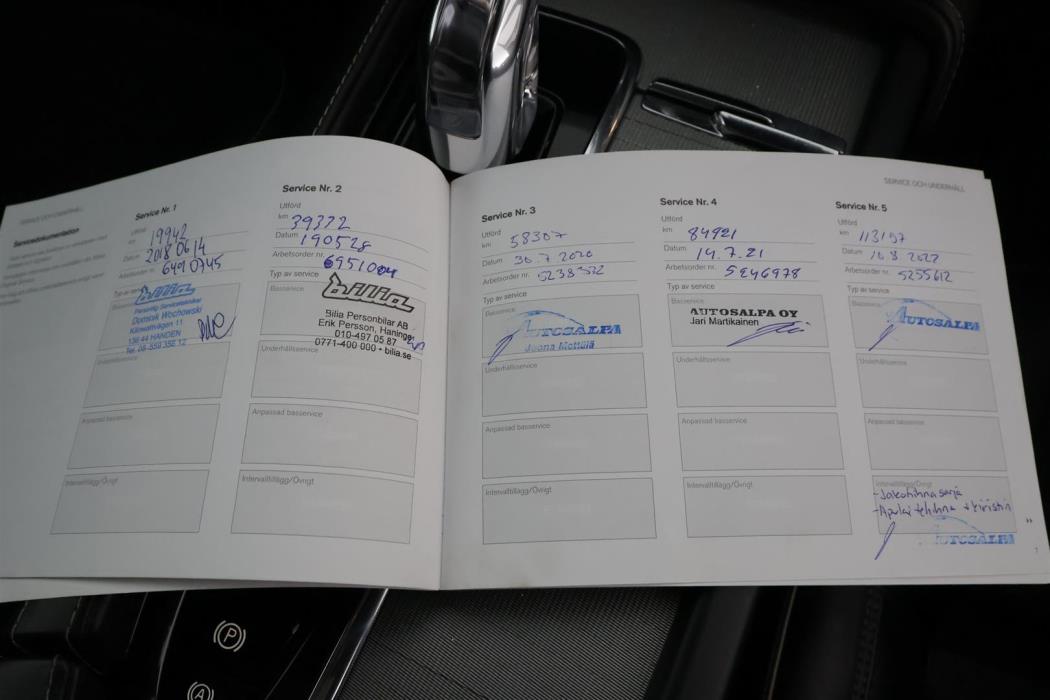 Servicedokumentation
Service Nr. 1
Utförd
km 19942
Datum 2018 06 14
Arbetsorder nr. 6490745
Typ av service
bilia
Personlig Servicetekniker
Dominik Wochowski
136 44 HANDEN
Tel. 08-559 358 12
Underhållsservice
Anpassad basservice
Intervalltillägg/Övrigt
Service Nr. 2
Utförd
km 39372
Datum 190528
Arbetsorder nr.
Typ av service
Basservice
bilia
Bilia Personbilar AB
Erik Persson, Haninge
010-497 05 87
0771-400 000 • bilia.se
Underhållsservice
Anpassad basservice
Intervalltillägg/Övrigt
SERVICE OCH UNDERHÅLL
Service Nr. 3
Utförd
km 58307
Datum 30.7 2020
Arbetsorder nr. 5238522
Typ av service
Basservice
AUTOSALPA
Joona Mottölä
Underhållsservice
Anpassad basservice
Intervalltillägg/Övrigt
Service Nr. 4
Utförd
km 84921
Datum 14.7.21
Arbetsorder nr. 5246978
Typ av service
Basservice
AUTOSALPA OY
Jari Martikainen
Underhållsservice
Anpassad basservice
Intervalltillägg/Övrigt
Service Nr. 5
Utförd
km 113197
Datum 10.8 2022
Arbetsorder nr. 5255612
Typ av service
Basservice
AUTOSALPA
Underhållsservice
Anpassad basservice
Intervalltillägg/Övrigt
- Jakohihnasarja
- Apulaitehihna + kiristin
AUTOSALPA
»
7
P
A